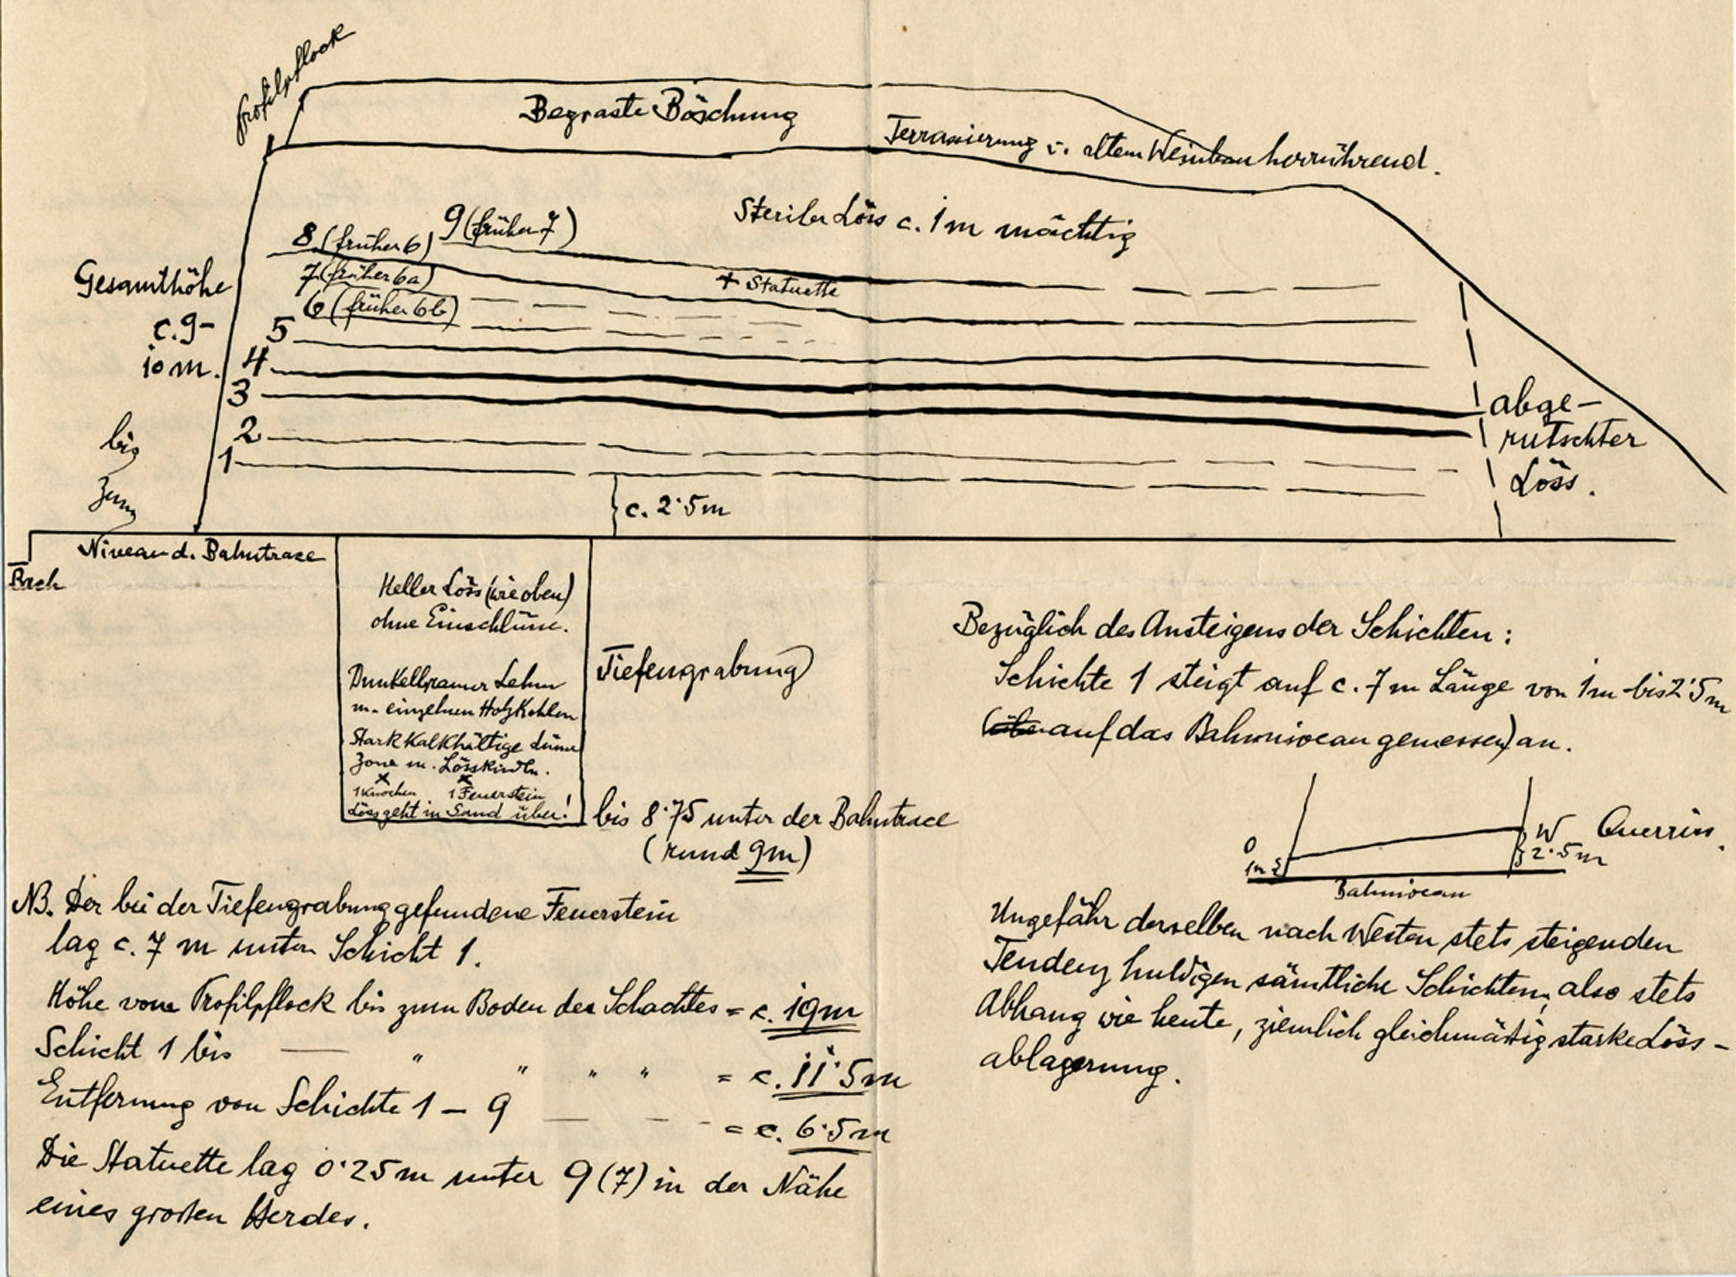 Profilpflock
Begraste Böschung
Terrassierung v. altem Weinbau herrührend.
Steriler Löss c. 1 m mächtig
9 (früher 7)
8 (früher 6)
7 (früher 6a)
6 (früher 6b)
+ Statuette
5
4
3
2
1
Gesamthöhe
c. 9-
10 m.
bis
zum
Niveau d. Bahntrace
Bach
c. 2·5 m
abge-
rutschter
Löss.
Heller Löss (wie oben)
ohne Einschlüsse.
Dunkelbrauner Lehm
m. einzelnen Holzkohlen
Stark Kalkhältige dünne
Zone m. Lösskindln.
x x
1 Knochen 1 Feuerstein
Löss geht in Sand über!
Tiefengrabung
bis 8·75 unter der Bahntrace
(rund 9m)
NB. Der bei der Tiefengrabung gefundene Feuerstein
lag c. 7 m unter Schicht 1.
Höhe vom Profilpflock bis zum Boden des Schachtes = c. 19m
Schicht 1 bis — " " " " = c. 11·5m
Entfernung von Schichte 1 – 9 — — - = c. 6·5m
Die Statuette lag 0·25 m unter 9 (7) in der Nähe
eines grossen Herdes.
Bezüglich des Ansteigens der Schichten:
Schichte 1 steigt auf c. 7 m Länge von 1m bis 2·5 m
(auf das Bahnniveau gemessen) an.
O
W
Querriss.
1m
2·5m
Bahnniveau
Ungefähr derselben nach Westen stets steigenden
Tendenz huldigen sämtliche Schichten, also stets
Abhang wie heute, ziemlich gleichmässig starke Löss-
ablagerung.